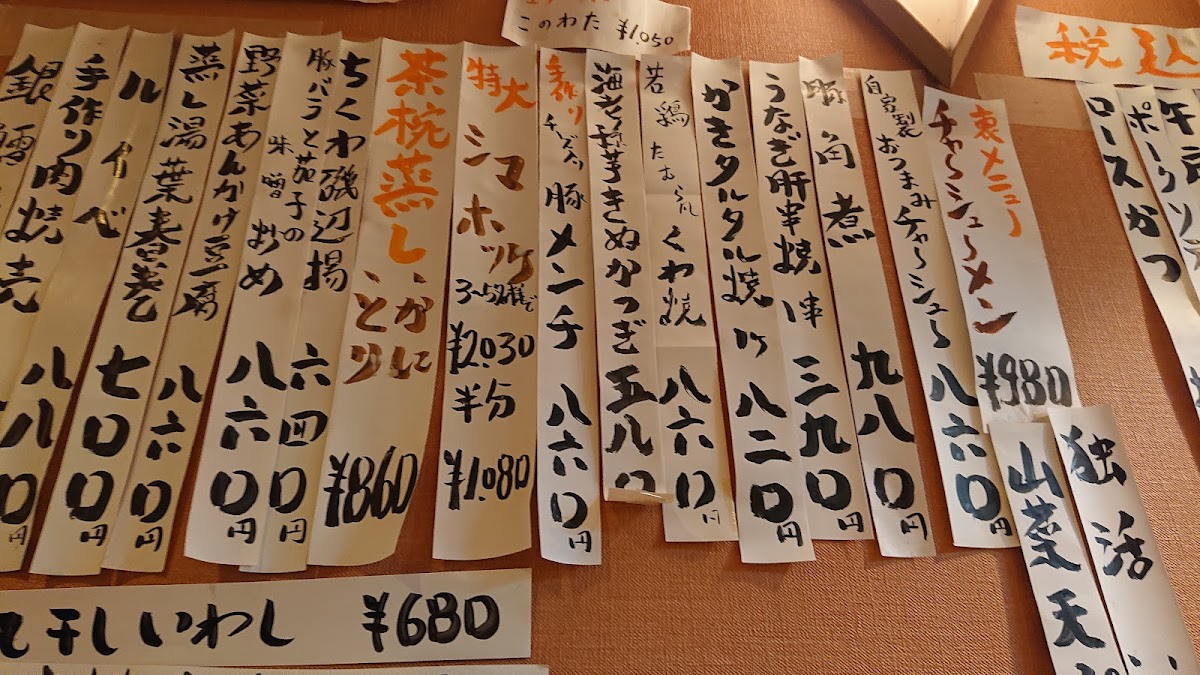 このわた ¥1,050
税込
ロースかつ
独活
山菜天
裏メニュー
チャーシューメン
¥980
自家製
おつまみチャーシュー 八六〇円
豚角煮 九八〇円
うなぎ肝串焼 1串 三九〇円
かきタルタル焼 1ケ 八二〇円
若鶏 くわ焼 八六〇円
海老芋きぬかつぎ 五八〇
手作り
チーズ入 豚メンチ 八六〇円
特大
シマホッケ
3~5名様で
¥2,030
半分
¥1,080
茶椀蒸し
かに
とり
¥860
ちくわ磯辺揚 六四〇円
豚バラと茄子の
味噌炒め 八六〇円
野菜あんかけ豆腐 八六〇円
蒸し湯葉春巻 七〇〇円
ルイベ 八八〇円
手作り肉焼売
銀鱈
丸干しいわし ¥680